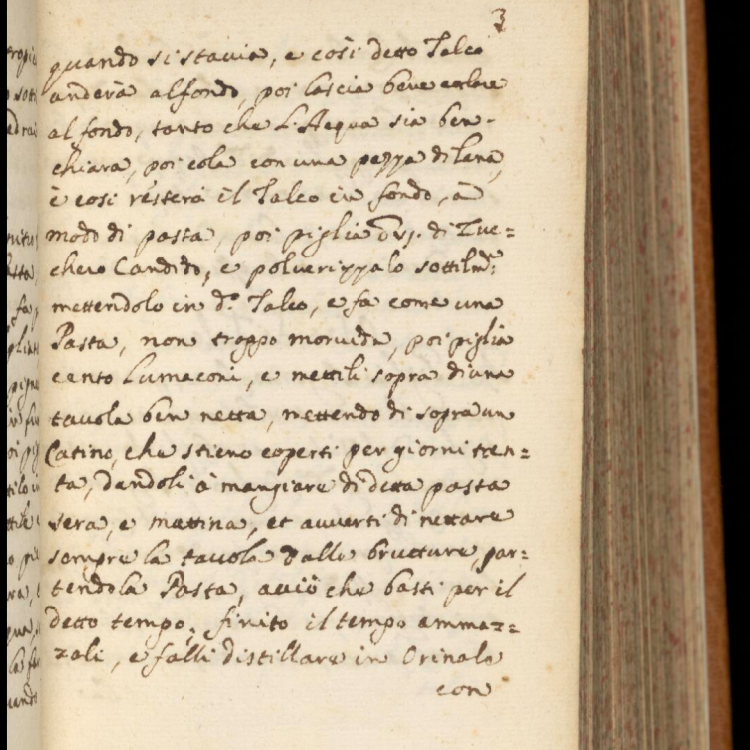 3
quando si stavia, e così detto Talco
anderà al fondo, poi lascia bene
al fondo, tanto che L'Acqua sia ben-
chiara, poi cola con una pezza di lana,
è così resterà il Talco in fondo, à
modo di pasta, poi piglia di Zuc=
chero Candido, e polverizzalo sottilm.te
mettendolo in d.o Talco, e fà come una
Pasta, non troppo morvida, poi piglia
cento Lumaconi, e mettili sopra di una
tavola ben netta, mettendo di sopra un
Catino, che stieno coperti per giorni tren=
ta, dandoli à mangiare di detta pasta
sera, e mattina, et avverti di nettare
sempre la tavola dalle brutture, par=
tendo la Pasta, acciò che basti per il
detto tempo, finito il tempo ammaz=
zali, e falli distillare in Orinale
con